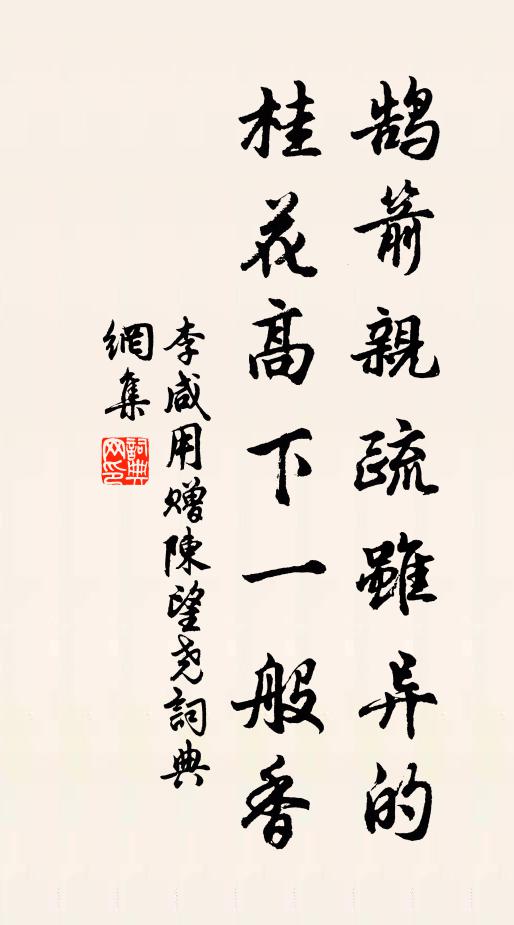 鹄箭親疏雖异的
桂花高下一般香
李咸用赠陳望尧詞典
網集
詞典網印